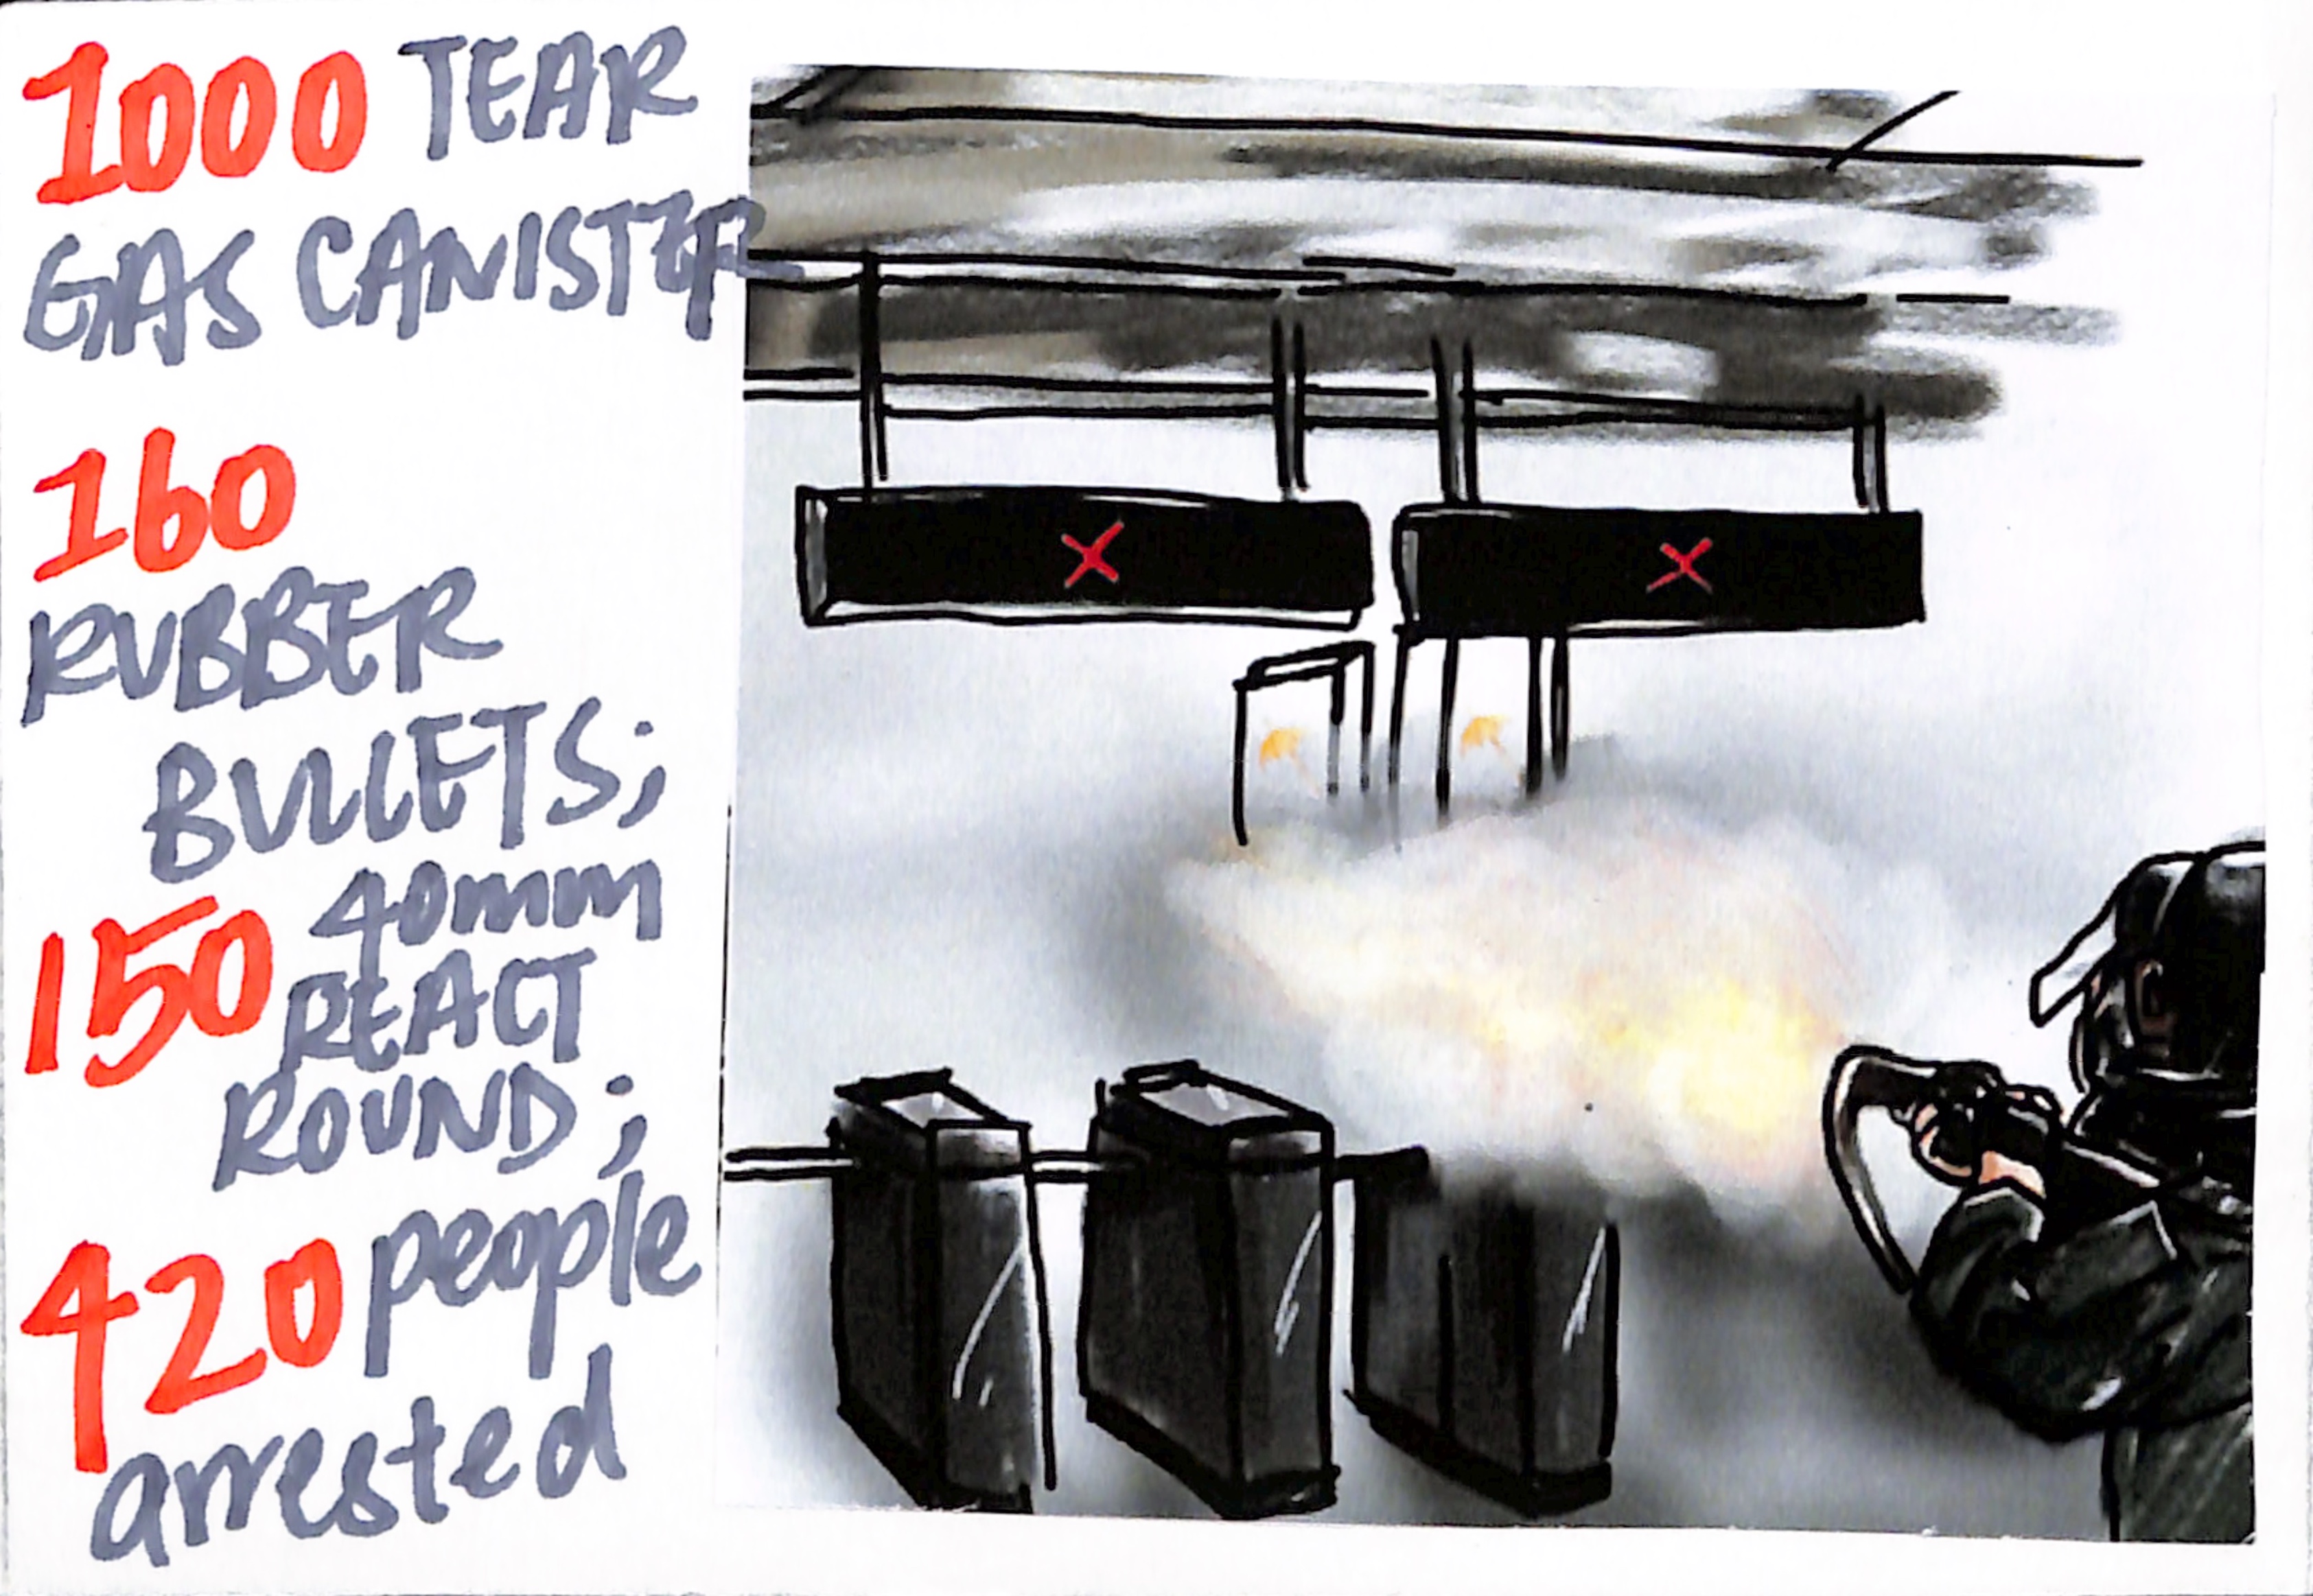 1000 TEAR
GAS CANISTER
160
RUBBER
BULLETS;
150 40mm
REACT
ROUND;
420 people
arrested